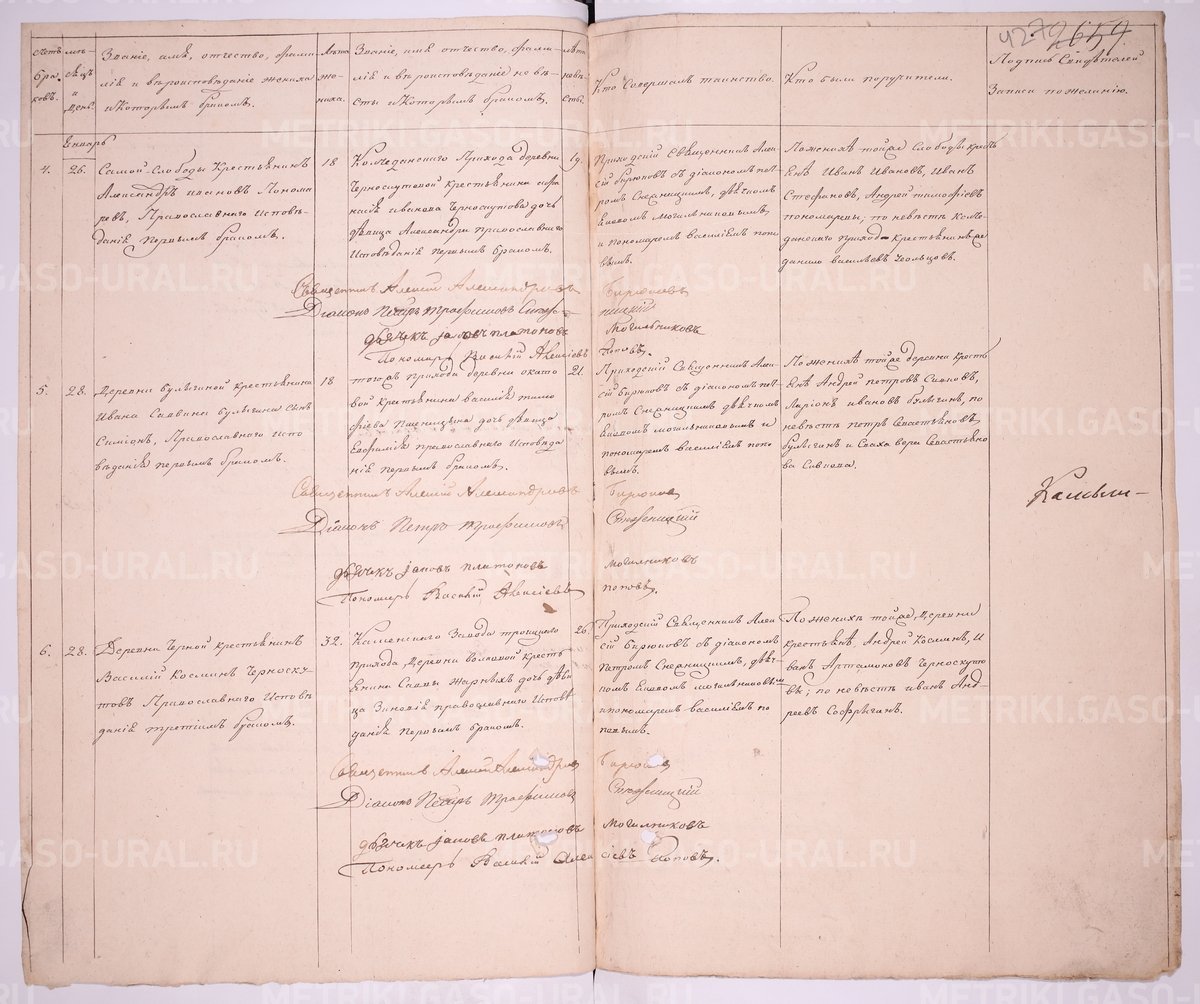 4272 2659
Счетъ браковъ.
Мѣсяцъ и день.
Званіе, имя, отчество, фами-
лія и вѣроисповѣданіе жениха
и которымъ бракомъ.
Лѣта же-
ниха.
Званіе, имя отчество, фами-
лія и вѣроисповѣданіе невѣ-
сты и которымъ бракомъ.
лѣта невѣ-
сты.
Кто совершалъ таинство.
Кто были поручители.
Подпись Свидѣтелей
Записи по желанію.
Генварь
4.
26.
Самой Слободы Крестьянинъ
Александръ ивановъ Понома
ревъ, Православнаго Исповѣ-
данія первымъ бракомъ.
18
Колчеданскаго Прихода деревни
Черноскутовой крестьянина афа
насія иванова Черноскутова дочь
дѣвица Александра православнаго
Исповѣданія первымъ бракомъ.
19.
Приходскій Священникъ Алек
сій Бирюковъ съ діакономъ пет
ромъ Снежицкимъ, дьячкомъ
Іаковомъ могильниковымъ,
и пономаремъ василіемъ попо
вымъ.
По женихѣ тойже слободы крест
яне Иванъ Ивановъ, Иванъ
Стефановъ, Андрей тимофѣевъ
пономаревы; по невѣстѣ колче-
данскаго прихода крестьянинъ
васильевъ
Священникъ Алексій Александровъ Бирюковъ
Діаконъ Петръ Трофимовъ Снеж ицкій
дьячекъ Іаковъ платоновъ Могильниковъ
Пономарь Василій Алексіевъ Поповъ.
5.
28.
Деревни булыгиной крестьянина
Ивана Саввина булыгина сынъ
Симіонъ, Православнаго Испо
вѣданія первымъ бракомъ.
18
тогожъ прихода деревни окато
вой Крестьянина василія тимо
фѣева Пшеницына дочь дѣвица
Евфимія православнаго Исповѣда
нія первымъ бракомъ.
21.
Приходскій Священникъ Алек
сій Бирюковъ съ діакономъ пет
ромъ Снежицкимъ дьячкомъ
Іаковомъ могильниковымъ и
пономаремъ василіемъ попо
вымъ.
По женихѣ тойже деревни кресть
яне Андрей петровъ
Ларіонъ ивановъ булыгинъ, по
невѣстѣ петръ Севастьяновъ
булыгинъ и Сваха вера Севастьяно
ва
Священникъ Алексій Александровъ Бирюковъ
Діаконъ Петръ Трофимовъ Снежицкій
дьячекъ Іаковъ платоновъ Могильниковъ
Пономарь Василій Алексіевъ поповъ.
6.
28.
Деревни Черной крестьянинъ
Василій Косминъ Черноску-
товъ Православнаго Исповѣ
данія третіимъ бракомъ.
32.
Каменскаго Завода троицкаго
прихода Деревни волковой Кресть-
янина Саввы Жарныхъ дочь дѣви
ца Зиновія православнаго Исповѣ
данія первымъ бракомъ.
26.
Приходскій Священникъ Алек
сій Бирюковъ съ діакономъ
Петромъ Снежицкимъ, дьяч-
комъ Іаковомъ могильниковымъ
и пономаремъ василіемъ по
повымъ.
По женихѣ тойже, деревни
крестьяне, Андрей Косминъ, И
ванъ Артамоновъ Черноскуто
вы; по невѣстѣ иванъ Анд-
реевъ
Священникъ Алексій Александровъ Бирюковъ
Діаконъ Петръ Трофимовъ Снежицкій
дьячекъ Іаковъ платоновъ Могильниковъ
Пономарь Василій Алексіевъ Поповъ.
METRIKI.GASO-URAL.RU